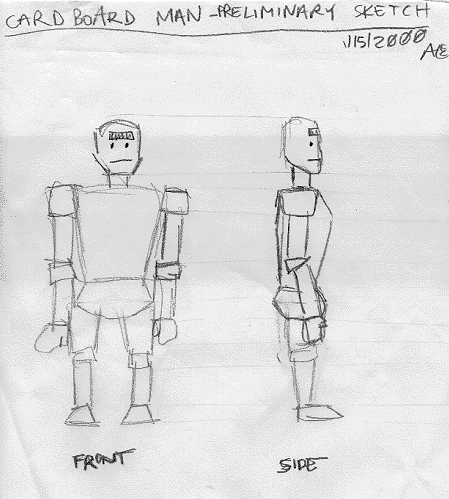 CARDBOARD MAN - PRELIMINARY SKETCH
1/15/2000
FRONT
SIDE